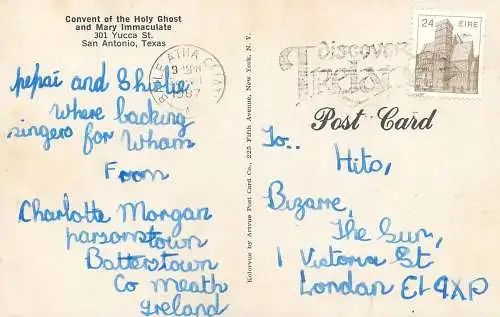 Convent of the Holy Ghost
and Mary Immaculate
301 Yucca St.
San Antonio, Texas
pepai and Shirlie
Where backing
singers for Wham
From
Charlotte Morgan
parsonstown
Batterstown
Co meath
Ireland
Kolorvue by Artvue Post Card Co., 225 Fifth Avenue, New York, N. Y.
BAILE ÁTHA CLIATH
9-15PM
1987
discover
24 EIRE
Post Card
To..
Hito,
Bizarre,
The Sun,
1 Victoria St
London E1 9XP